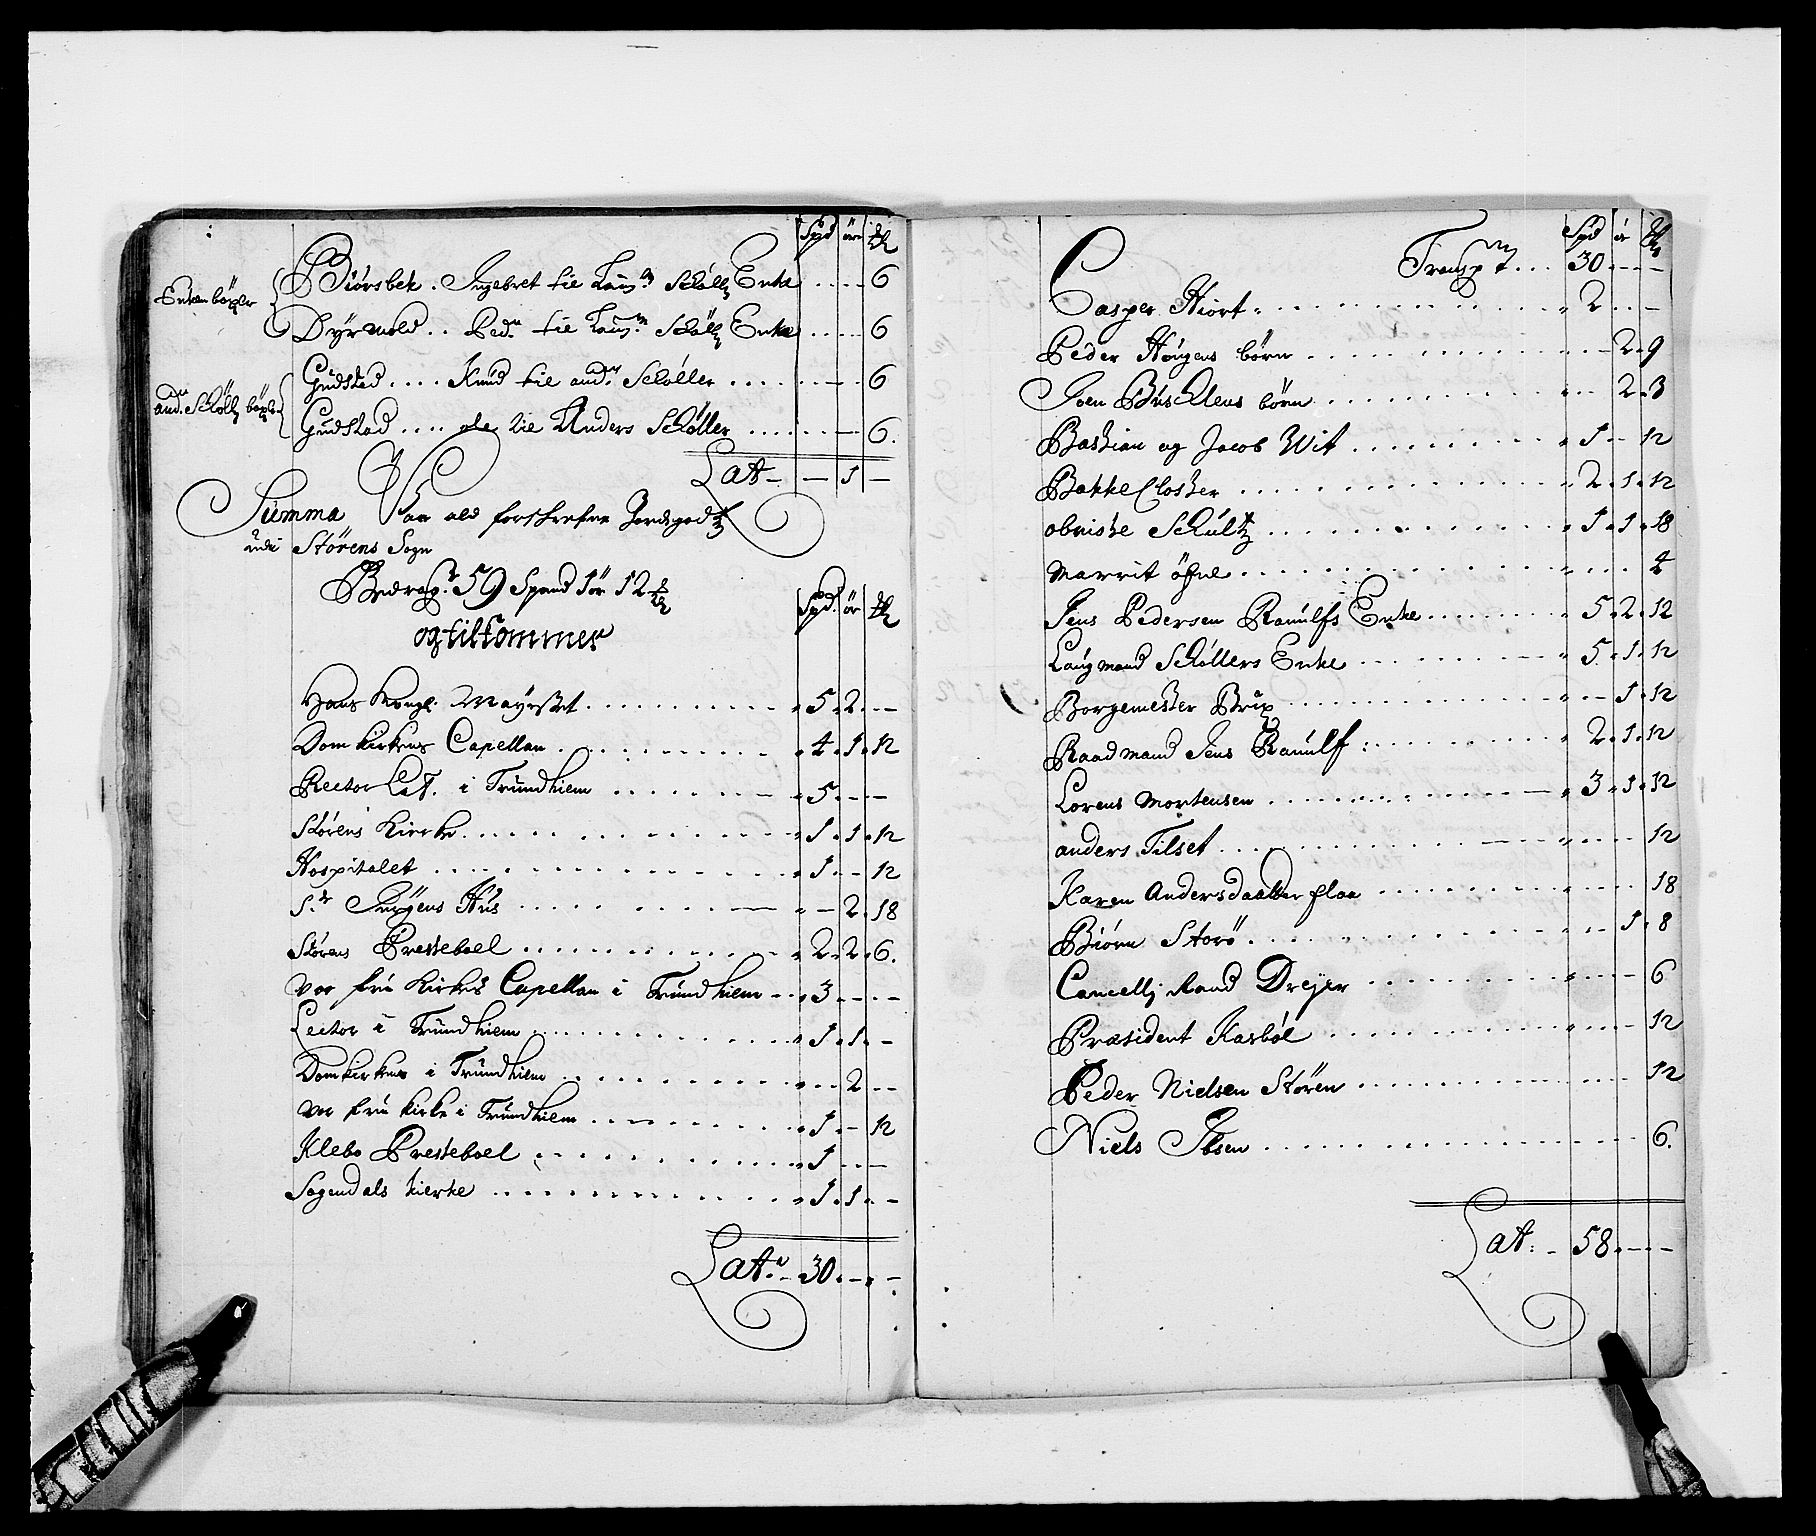 Spd ör
Enken böxler
Biörsbek . Ingebret til Laugm. Schøllr Enke .... 6
Dyrmold .. Ped. til Laugm. Schøllr Enke .... 6
And. Schøllr böxler
Gudstad .... Knud til And. Schøller .... 6
Gudstad .... ole til Anders Schøller .... 6.
Lat - - 1 -
Summa Paa ald forskrefne Jordegods
udi Störens Sogn
Bedrag. 59 Spand 1 ör 12
og tilkommer
Spd. ör
Hans Kongl. Mayestet .... 5. 2. -
Domkirkens Capellan .... 4. 1. 12
Rector Lat. i Trundhiem .... 5. - -
Störens Kierke .... 1. 1. 12
Hospitalet .... 1. - 12
S. Jörgens Hus .... - 2. 18
Störens Presteboel .... 2. 2. 6.
Vor frue Kirkes Capellan i Trundhiem .. 3. - -
Lector i Trundhiem .... 1. 1. -
Domkirken i Trundhiem .... - 2. -
Vor frue kirke i Trundhiem .... 1. - 12
Klebo Presteboel .... 1. - -
Sogendals kierke .... 1. 1. -
Lat. - 30. - -
Spd ör
Transpt ... 30. - -
Casper Hiort .... 2. - -
Peder Høygens börn .... - 2. 9
Joen Busch Clens börn .... - 2. 3
Bastian og Jacob Wit .... 1 - 12
Bakke Closter .... 2. 1. 12
obriste Schultz .... 1. 1. 18
Marrit öfne .... 4
Jens Pedersen Ramulfs Enke .... 5. 2. 12
Laugmand Schøllers Enke .... 5. 1. 12
Borgemester Brix .... - 1. 12
Raadmand Jens Ramulf .... 2. 1. 12
Lorens Mortensen .... 3. 1. 12
anders Tilset .... 12
Karen Andersdaatter flaa .... 18
Biörn Storö .... - 1. 8
Cancellj Raad Dreyer .... 6
Præsident Kasböl .... 12
Peder Nielsen Stören .... 12
Niels Ibsen .... 6.
Lat. - 58. - -